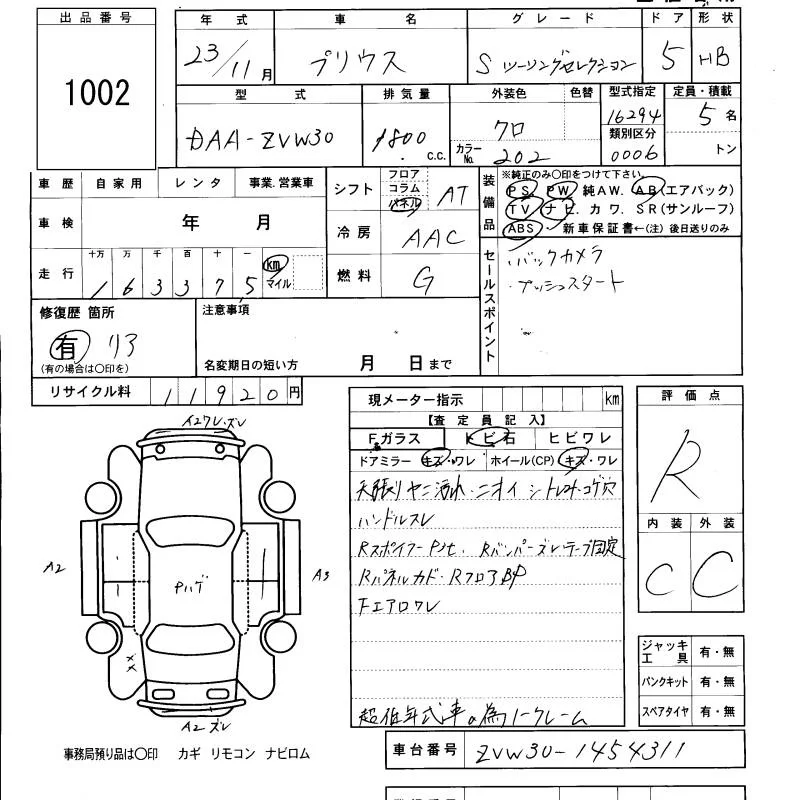 出品番号
1002
年式 車名 グレード ドア 形状
23/11月 プリウス Sツーリングセレクション 5 HB
型式 排気量 外装色 色替 型式指定 定員・積載
DAA-ZVW30 1800 C.C. クロ 16294 5名
カラーNo. 202 類別区分 0006 トン
車歴 自家用 レンタ 事業.営業車
車検 年 月
走行 十万 万 千 百 十 一
1 6 3 3 7 5 km マイル
シフト フロア コラム パネル AT
冷房 AAC
燃料 G
装備品
※純正のみ〇印をつけて下さい。
PS PW 純AW. AB(エアバック)
TV ナビ. カワ. SR(サンルーフ)
ABS・新車保証書←(注) 後日送りのみ
セールスポイント
・バックカメラ
・プッシュスタート
修復歴 箇所
有 リア
(有の場合は〇印を)
注意事項
名変期日の短い方 月 日まで
リサイクル料 11920円
現メーター指示 km
【査定員記入】
F.ガラス トビ石 ヒビワレ
ドアミラー キズ・ワレ ホイール(CP) キズ・ワレ
天張りヤニ汚れ・ニオイ シートスレ・コゲ穴
ハンドルスレ
Rスポイラー Pハゲ. Rバンパーズレテープ固定
Rパネルカド・RフロアBP
Fエアロワレ
超低年式車の為ノークレーム
評価点
R
内装 外装
C C
A2ワレ・ズレ
A2
A3
Pハゲ
××
A2ズレ
ジャッキ工具 有・無
パンクキット 有・無
スペアタイヤ 有・無
事務局預り品は〇印 カギ リモコン ナビロム
車台番号 ZVW30-1454311